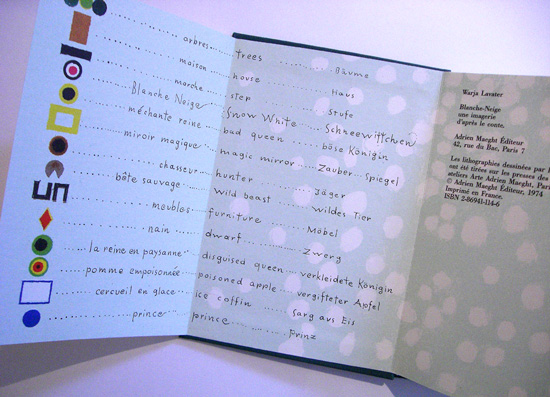 arbres trees Bäume
maison house Haus
marche step Stufe
Blanche Neige Snow White Schneewittchen
méchante reine bad queen böse Königin
miroir magique magic mirror Zauber Spiegel
chasseur hunter Jäger
bête sauvage wild beast wildes Tier
meubles furniture Möbel
nain dwarf Zwerg
la reine en paysanne disguised queen verkleidete Königin
pomme empoisonnée poisoned apple vergifteter Apfel
cercueil en glace ice coffin Sarg aus Eis
prince prince Prinz
Warja Lavater
Blanche-Neige
une imagerie
d'après le conte.
Adrien Maeght Éditeur
42, rue du Bac, Paris 7
Les lithographies dessinées par
ont été tirées sur les presses des
ateliers Arte Adrien Maeght, Paris
© Adrien Maeght Éditeur, 1974
Imprimé en France.
ISBN 2-86941-114-6